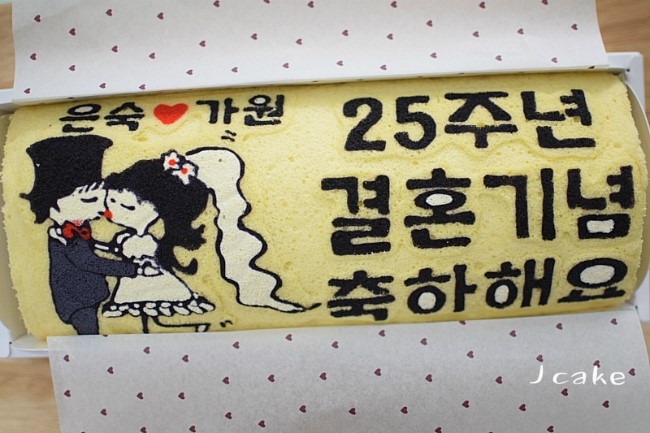 은숙♥가원
25주년
결혼기념
축하해요
Jcake